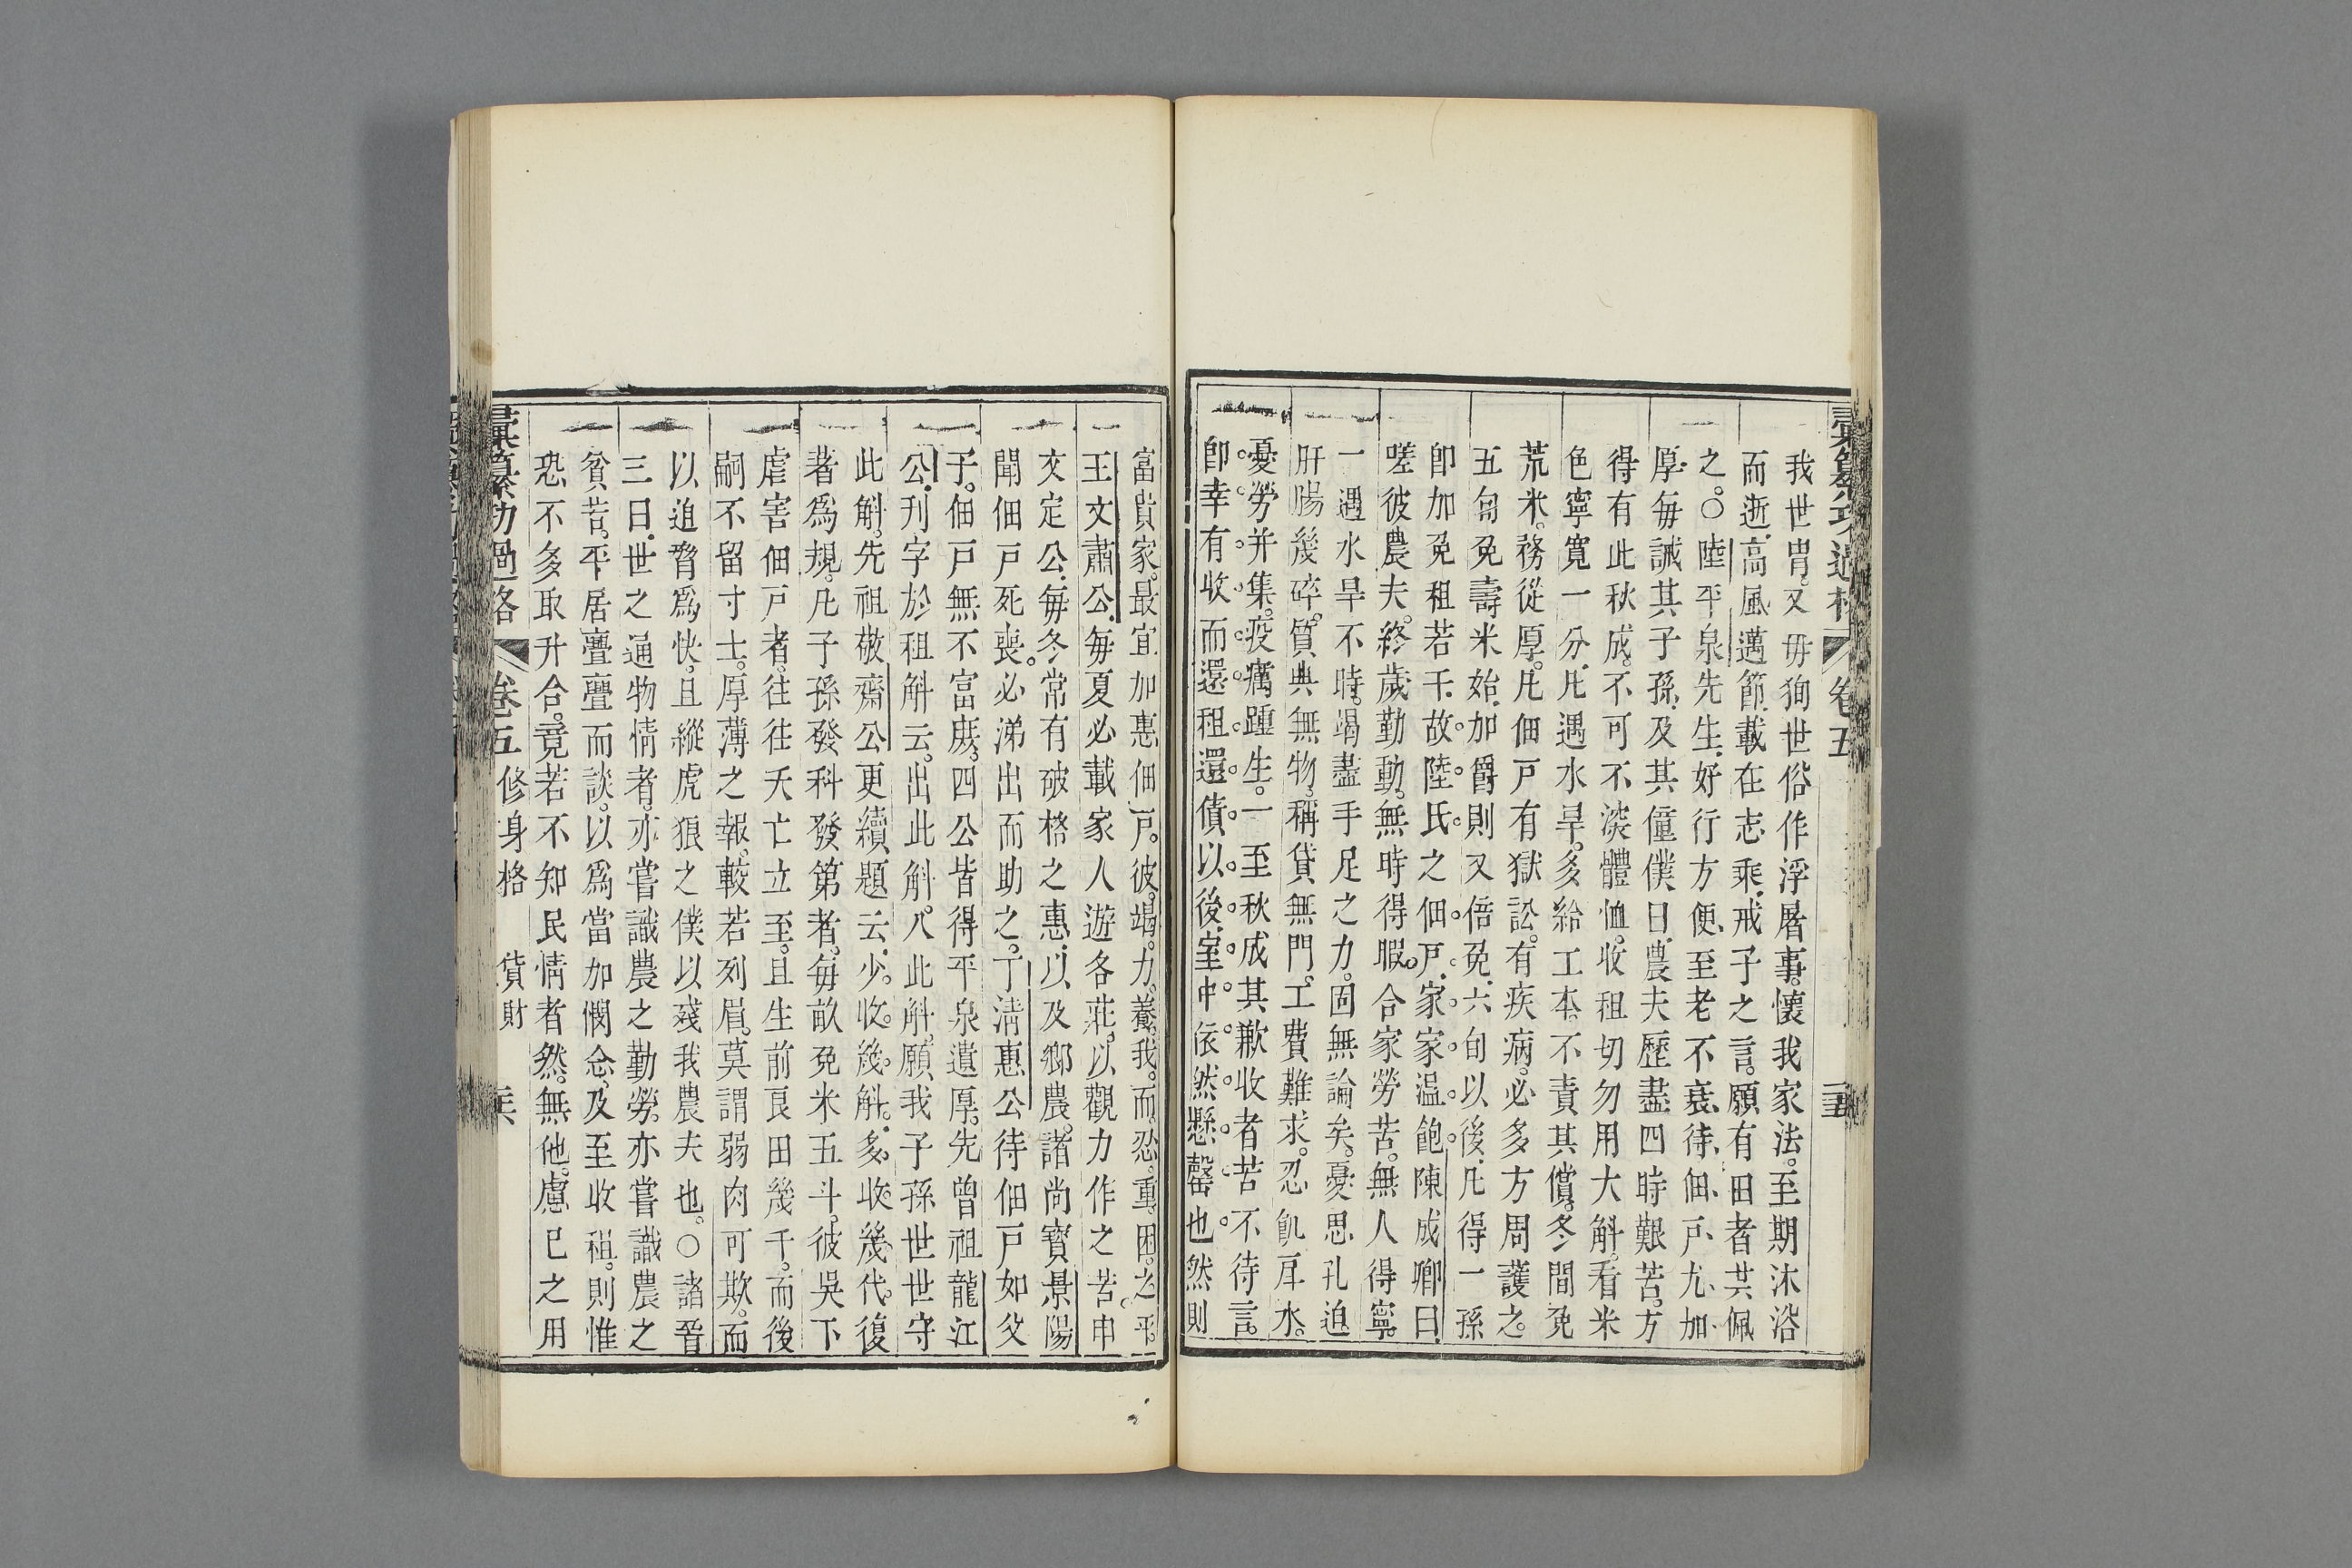 彙纂功過格 卷五
我世胄。又毋狥世俗作浮屠事。懷我家法。至期沐浴
而逝。高風邁節。載在志乘。戒子之言。願有田者共佩
之。○陸平泉先生。好行方便。至老不衰。待佃戶尤加
厚。每誡其子孫。及其僮僕曰。農夫歷盡四時艱苦。方
得有此秋成。不可不深體恤。收租切勿用大斛。看米
色寧寬一分。凡遇水旱。多給工本。不責其償。冬間免
荒米。務從厚。凡佃戶有獄訟。有疾病。必多方周護之。
五旬免壽米始。加爵則又倍免。六旬以後。凡得一孫
卽加免租若干。故陸氏之佃戶。家家温飽。陳成卿曰。
嗟彼農夫。終歲勤動。無時得暇。合家勞苦。無人得寧。
一遇水旱不時。竭盡手足之力。固無論矣。憂思孔迫
肝腸幾碎。質典無物。稱貸無門。工費難求。忍飢戽水。
憂勞并集。疫癘踵生。一至秋成其歉收者苦不待言。
卽幸有收而還租還債以後。室中依然懸罄也然則
富貴家。最宜加惠佃戶。彼竭力養我。而忍重困之乎。
王文肅公。每夏必載家人遊各莊。以觀力作之苦。申
文定公。每冬常有破格之惠。以及鄉農。諸尚寶景陽
聞佃戶死喪。必涕出而助之。丁淸惠公待佃戶如父
子。佃戶無不富庶。四公皆得平泉遺厚。先曾祖龍江
公。刋字於租斛云。出此斛。入此斛。願我子孫世世守
此斛。先祖敬齋公更續題云。少收幾斛。多收幾代。復
著爲規。凡子孫發科發第者。每畝免米五斗。彼吳下
虐害佃戶者。往往夭亡立至。且生前良田幾千。而後
嗣不留寸土。厚薄之報。較若列眉。莫謂弱肉可欺。而
以追脅爲快。且縱虎狼之僕以殘我農夫也。○諸晉
三曰。世之通物情者。亦嘗識農之勤勞。亦嘗識農之
貧苦。平居亹亹而談。以爲當加憫念。及至收租。則惟
恐不多取升合。竟若不知民情者然。無他。慮已之用
彙纂功過格 卷五 修身格 貨財